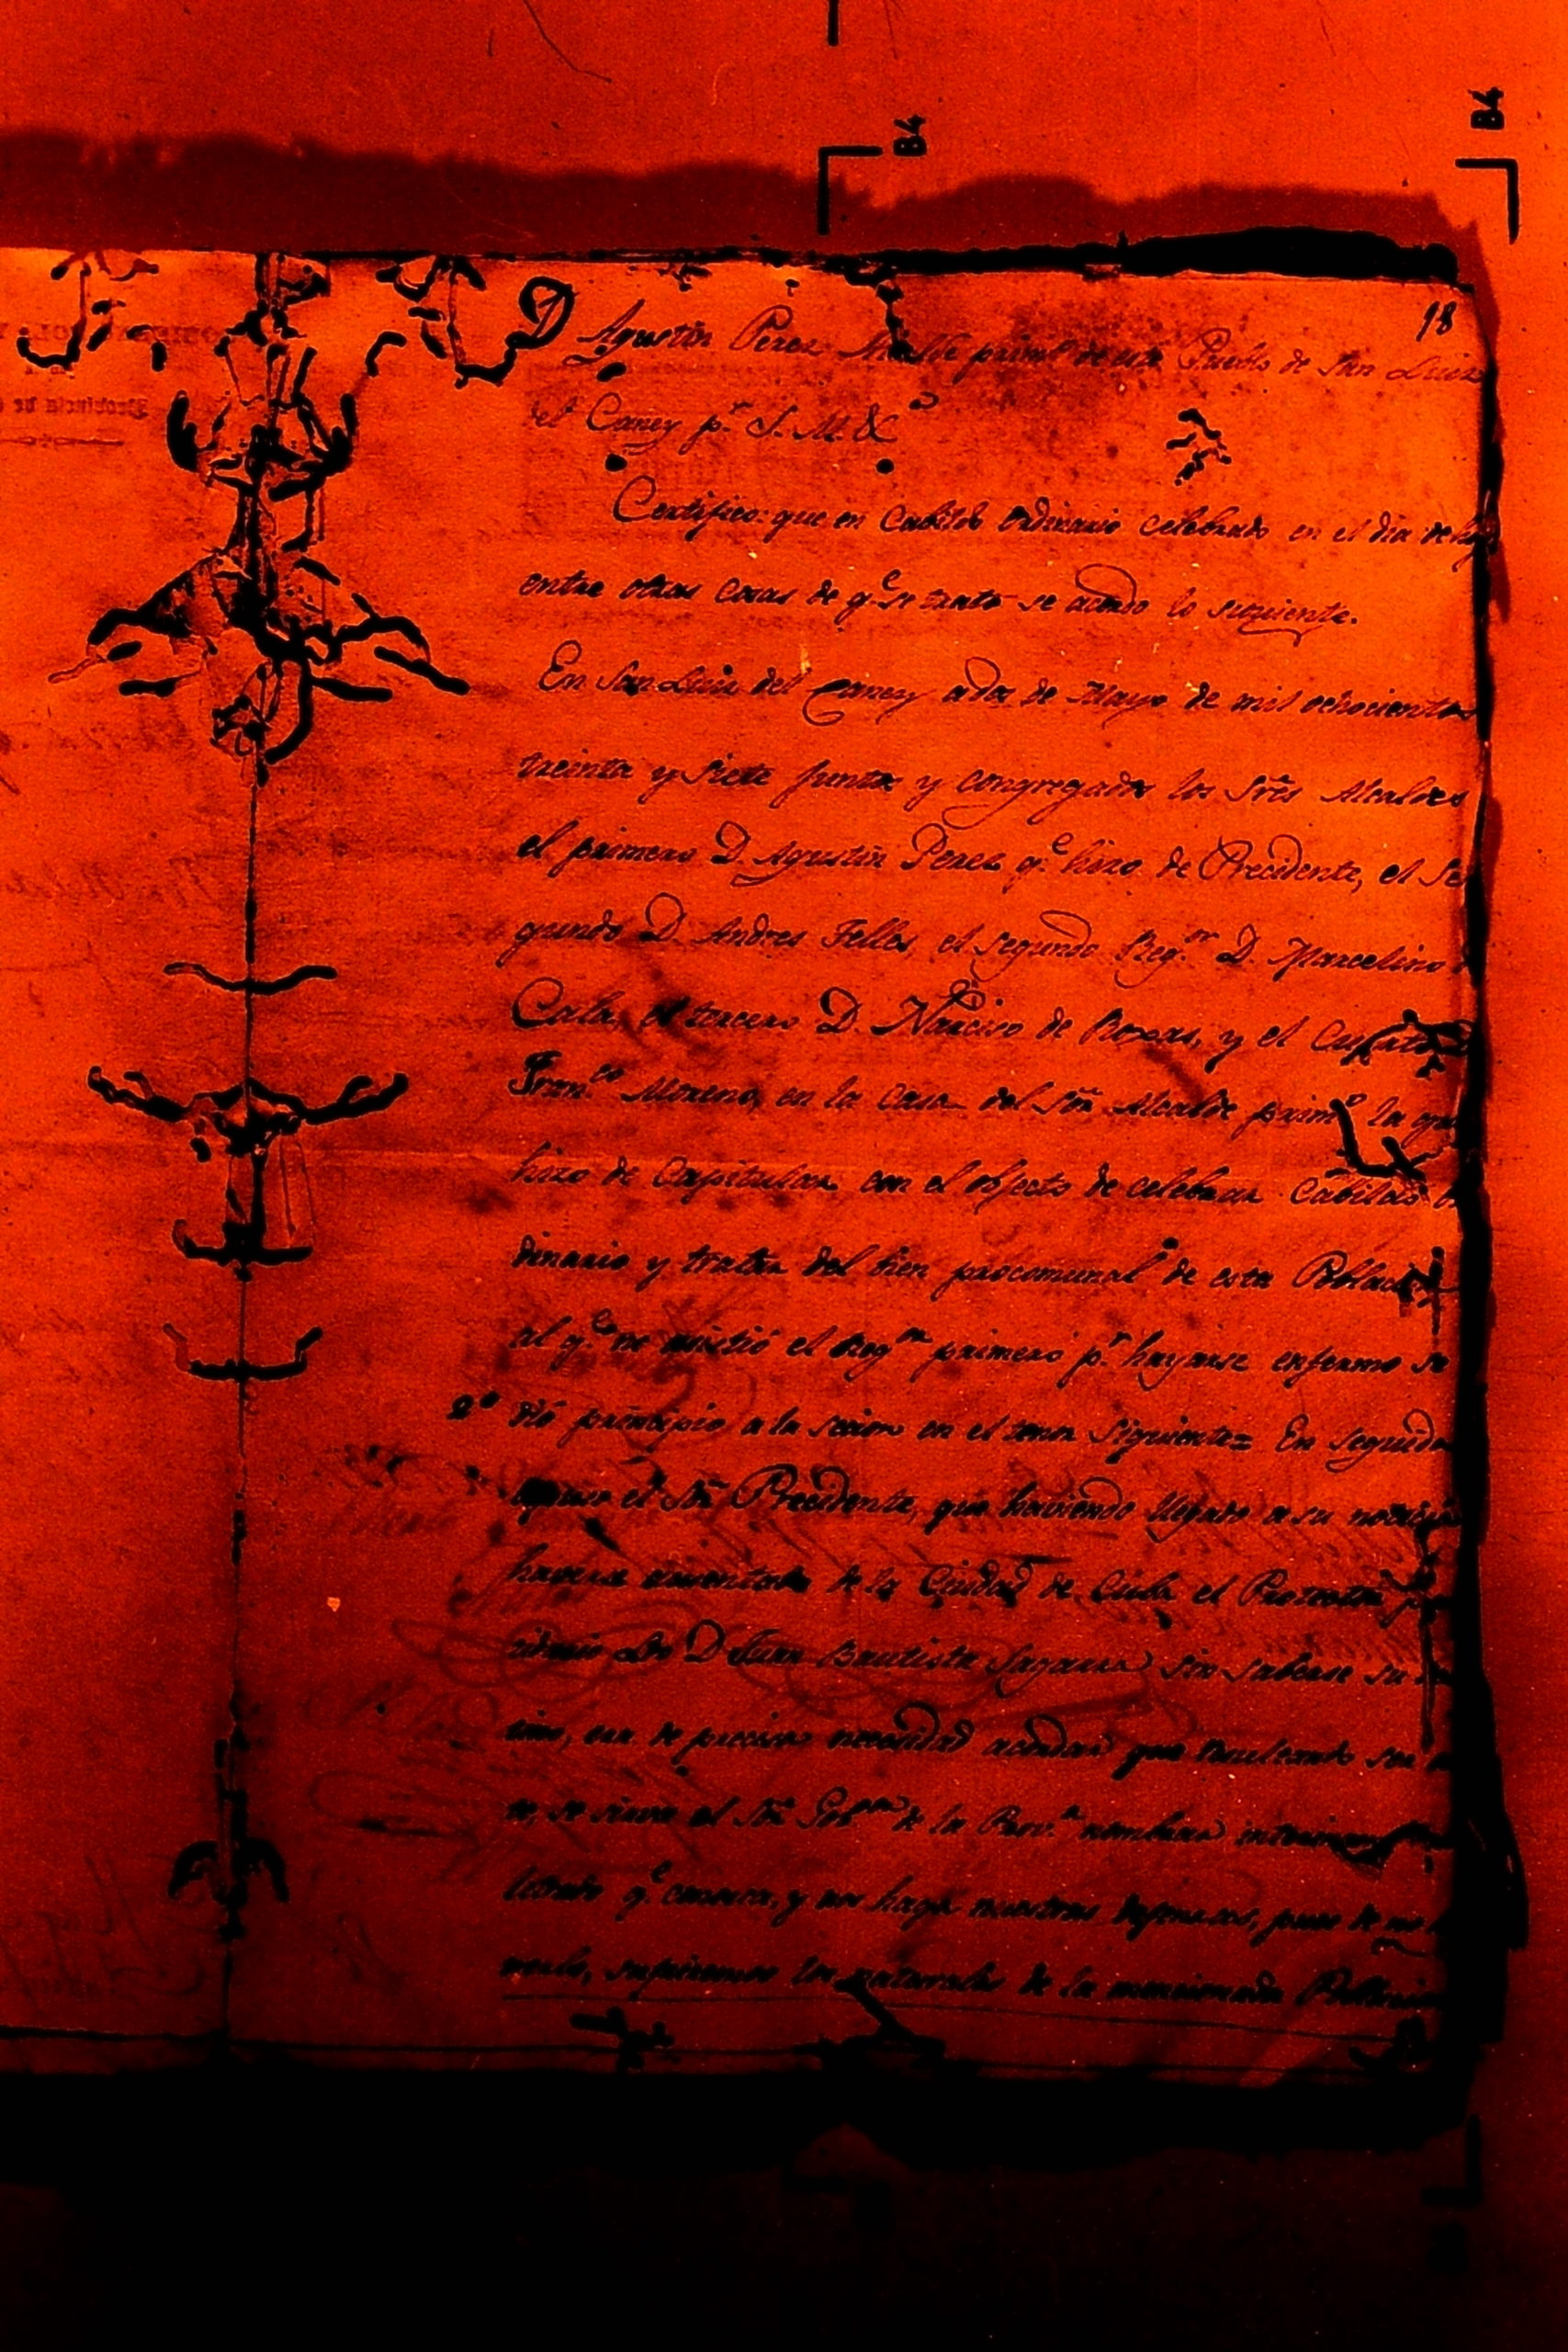 B4
B4
18
D Agustin Perez Alcalde prim.º de este Pueblo de San Luis
del Caney p.r S. M. &.a
Certifico: que en Cabildo ordinario celebrado en el dia de hoy
entre otras cosas de q.e se trató se acordó lo siguiente.
En San Luis del Caney a dos de Mayo de mil ochocientos
treinta y siete juntos y congregados los S.res Alcaldes
el primero D. Agustin Perez q.e hizo de Precidente, el Se
gundo D. Andres Telles, el segundo Reg.or D. Marcelino
Cala, el tercero D. Narciso de Rosas, y el
Fran.co Moreno, en la Casa del S.or Alcalde prim.o la que
hizo de Capitular con el objecto de celebrar Cabildo or
dinario y tratar del bien procomunal de esta Poblacion
al q.e no asistió el Reg.or primero p.r hayarse enfermo se
2º dió principio a la secion en el tenor Siguiente= En seguida
espuso el S.or Precidente, que haviendo llegado a su noticia
haverse ausentado de la Ciudad de Cuba el Protector
D Juan Bautista Sagarra sin saberse su
era de precisa necesidad acordar que resultando ser
se sirva el S.or Gob.or de la Prov.a nombrar
q.e conosca, y nos haga nuestras defensas, pues de no
los naturales de la mencionada Poblacion